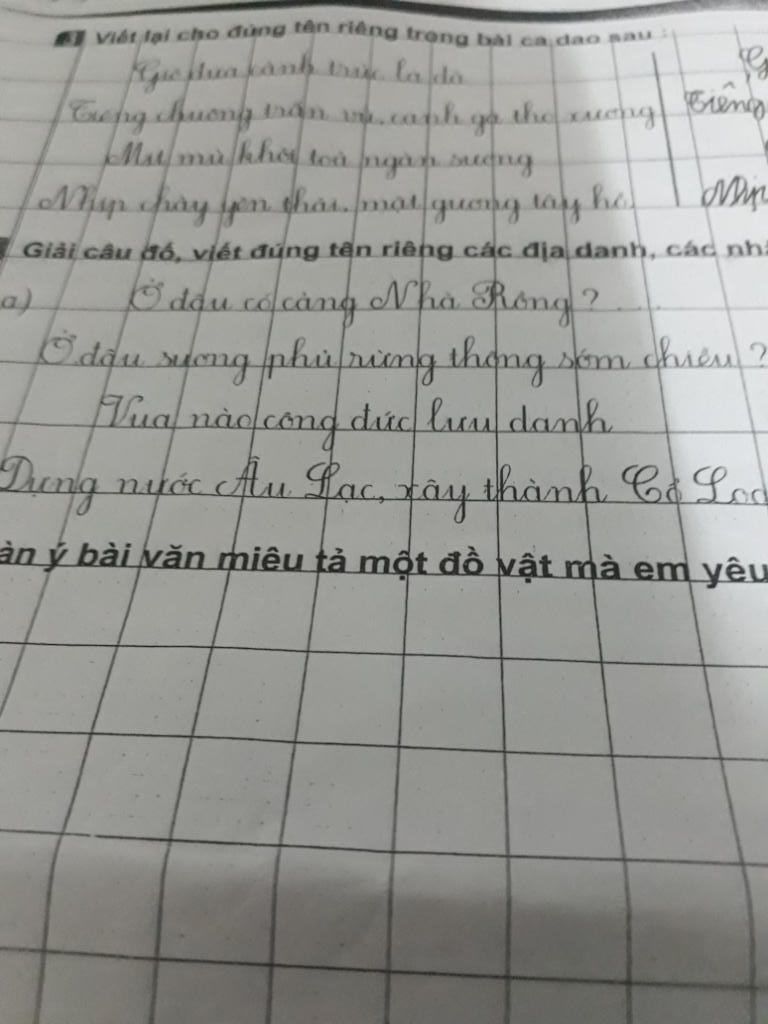 Viết lại cho đúng tên riêng trong bài ca dao sau :
Gió đưa cành trúc la đà
Tiếng chuông trấn vũ, canh gà thọ xương
Mịt mù khói toả ngàn sương
Nhịp chày yên thái, mặt gương tây hồ.
G
Tiếng
Nhịp
Giải câu đố, viết đúng tên riêng các địa danh, các nh
a) Ở đâu có cảng Nhà Rồng ?
Ở đâu sương phủ rừng thông sớm chiều ?
Vua nào công đức lưu danh
Dựng nước Âu Lạc, xây thành Cổ Loa
àn ý bài văn miêu tả một đồ vật mà em yêu